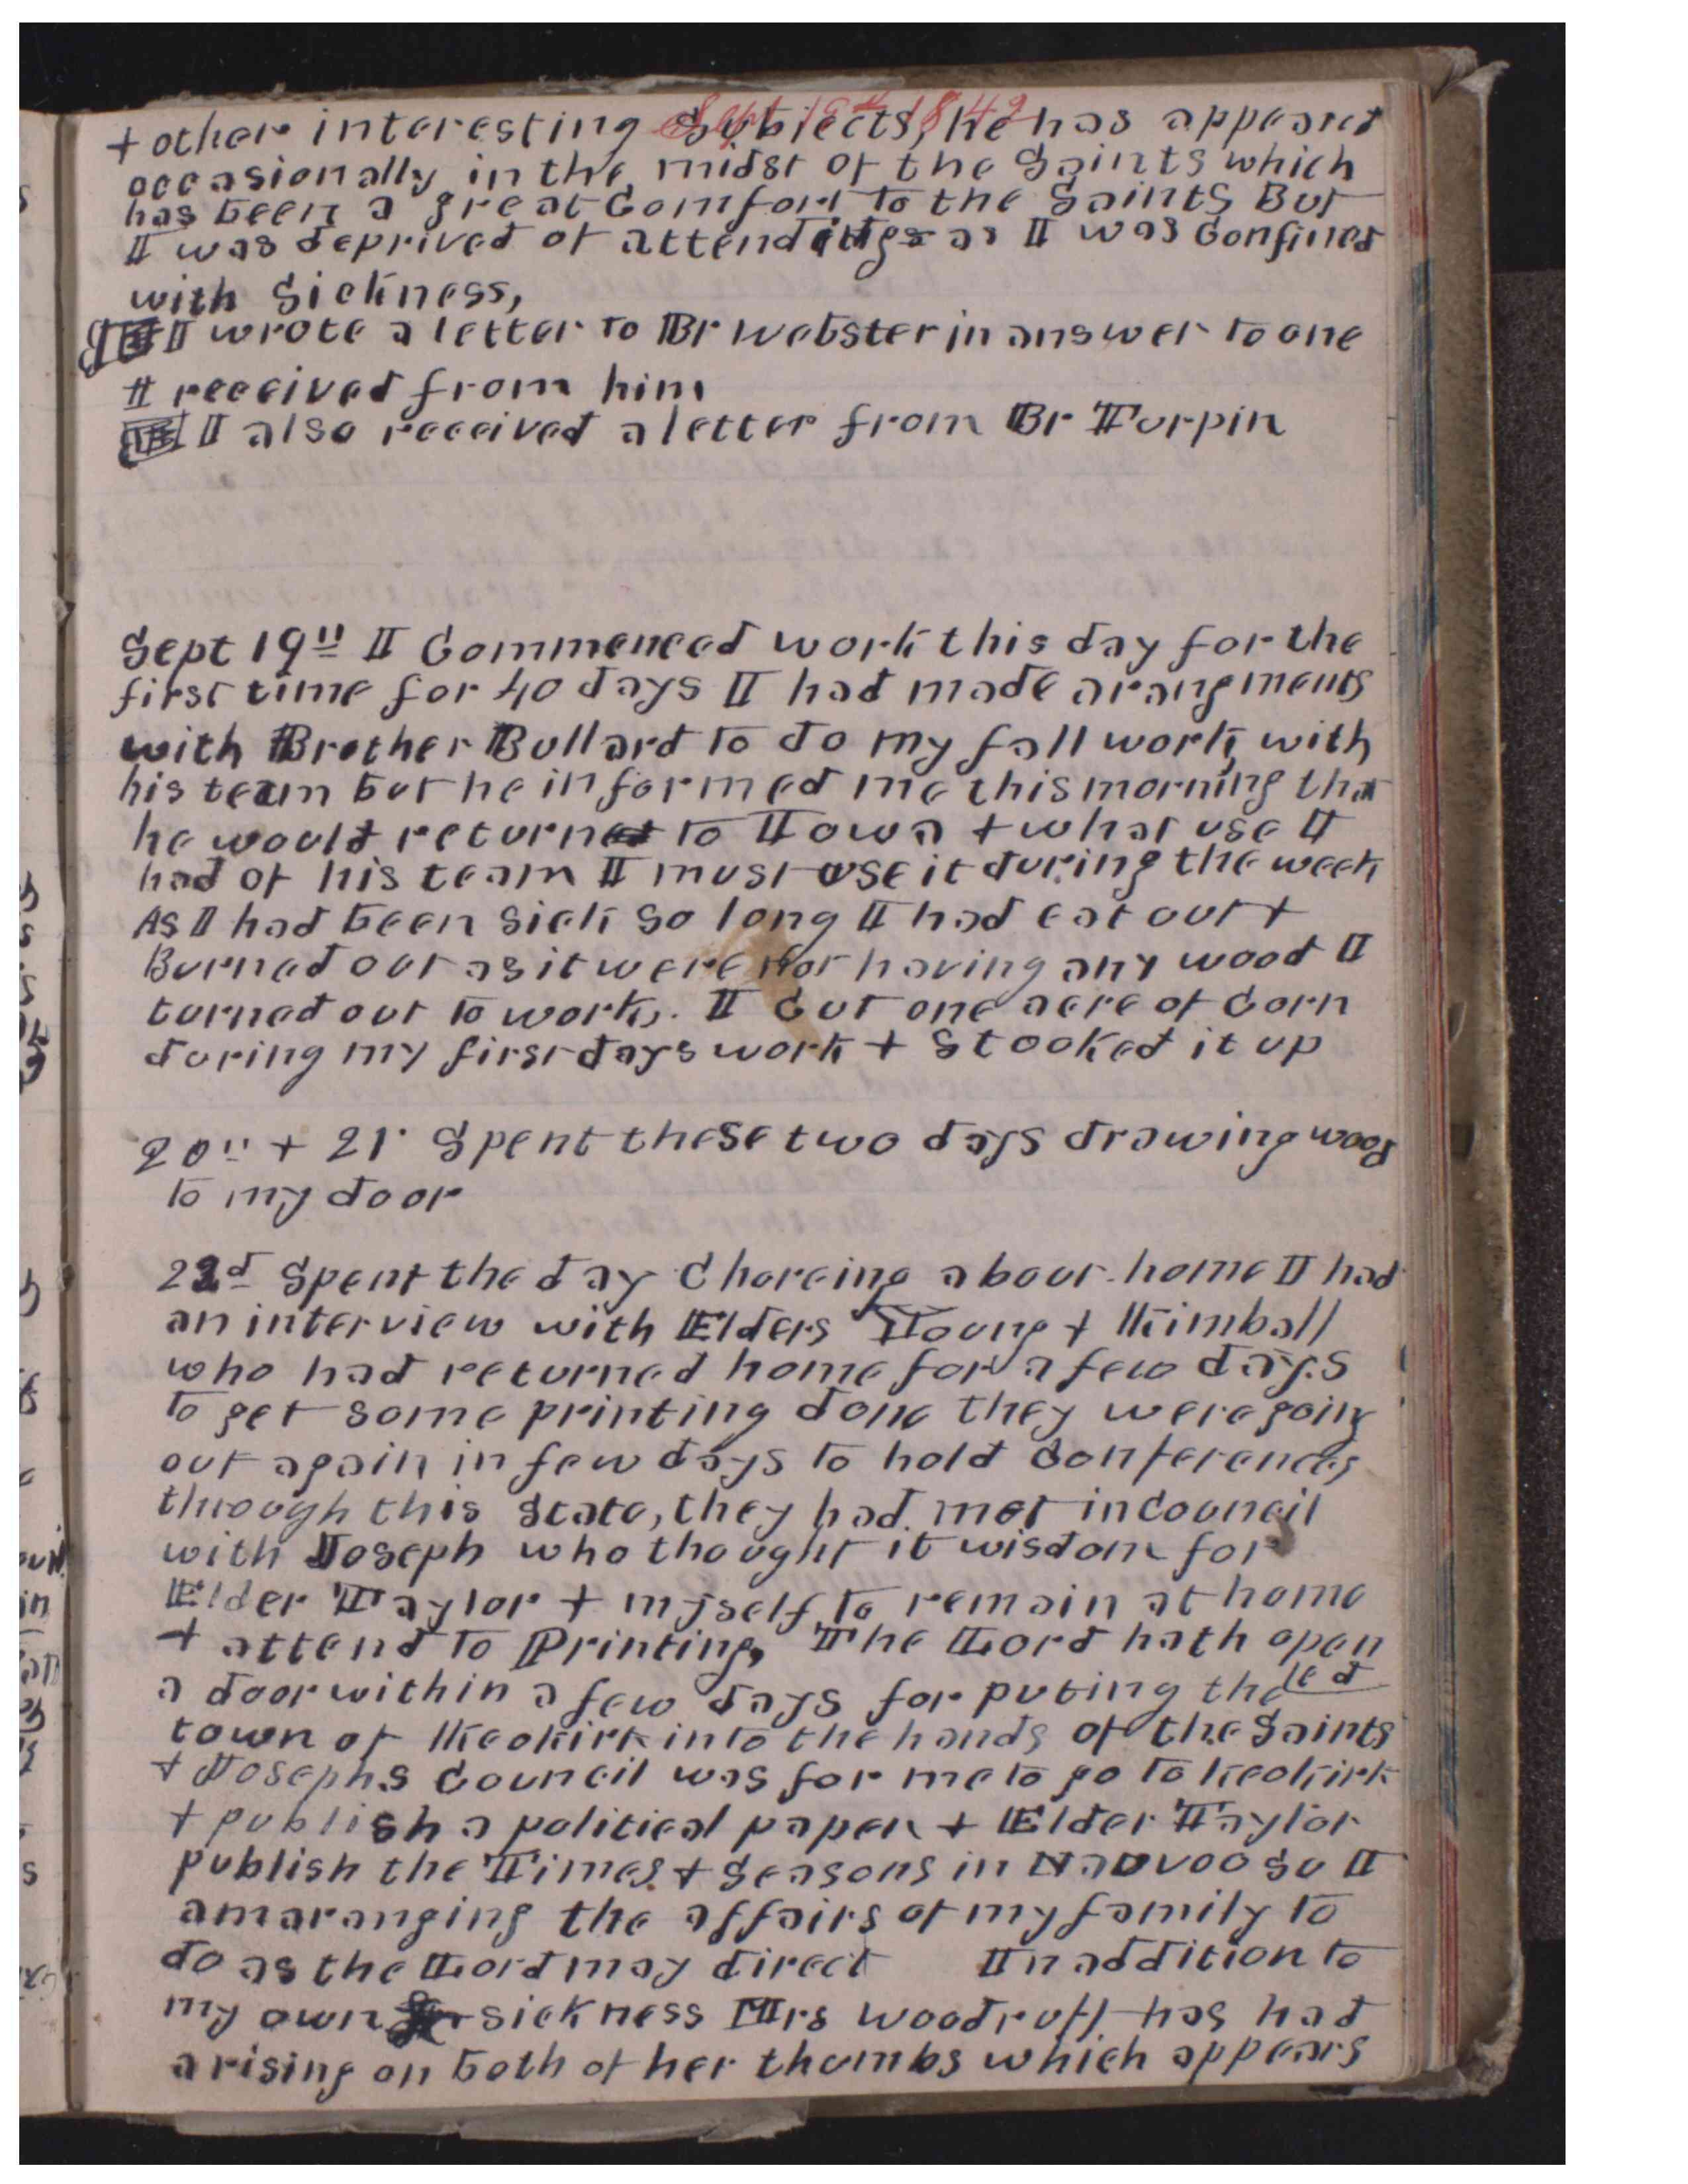 Sept 18th 1842
+ other interesting Subjects, he has appeared
occasionally in the midst of the Saints which
has been a great Comfort to the Saints But
I was deprived of attending as I was Confined
with Sickness,
I wrote a letter to Br Webster in answer to one
I received from him
I also received a letter from Br Turpin
Sept 19th I Commenced work this day for the
first time for 40 days I had made arangments
with Brother Bullard to do my fall work, with
his team but he informed me this morning that
he would return to Iowa + what use I
had of his team I must use it during the week
As I had been sick so long I had eat out +
Burned out as it were not having any wood I
turned out to work. I Cut one acre of Corn
during my first days work + Stooked it up
20th + 21st Spent these two days drawing wood
to my door
22d Spent the day Choreing about home I had
an interview with Elders Young + Kimball
who had returned home for a few days
to get some printing done they were going
out again in few days to hold Conferences
through this State, they had met in Council
with Joseph who thought it wisdom for
Elder Taylor + myself to remain at home
+ attend to Printing, The Lord hath open
ed
a door within a few days for puting the
town of Keokirk into the hands of the Saints
+ Josephs Council was for me to go to Keokirk
+ publish a political paper + Elder Taylor
publish the Times + Seasons in Nauvoo so I
am aranging the affairs of my family to
do as the Lord may direct In addition to
my own sickness Mrs Woodruff has had
a rising on both of her thumbs which appears